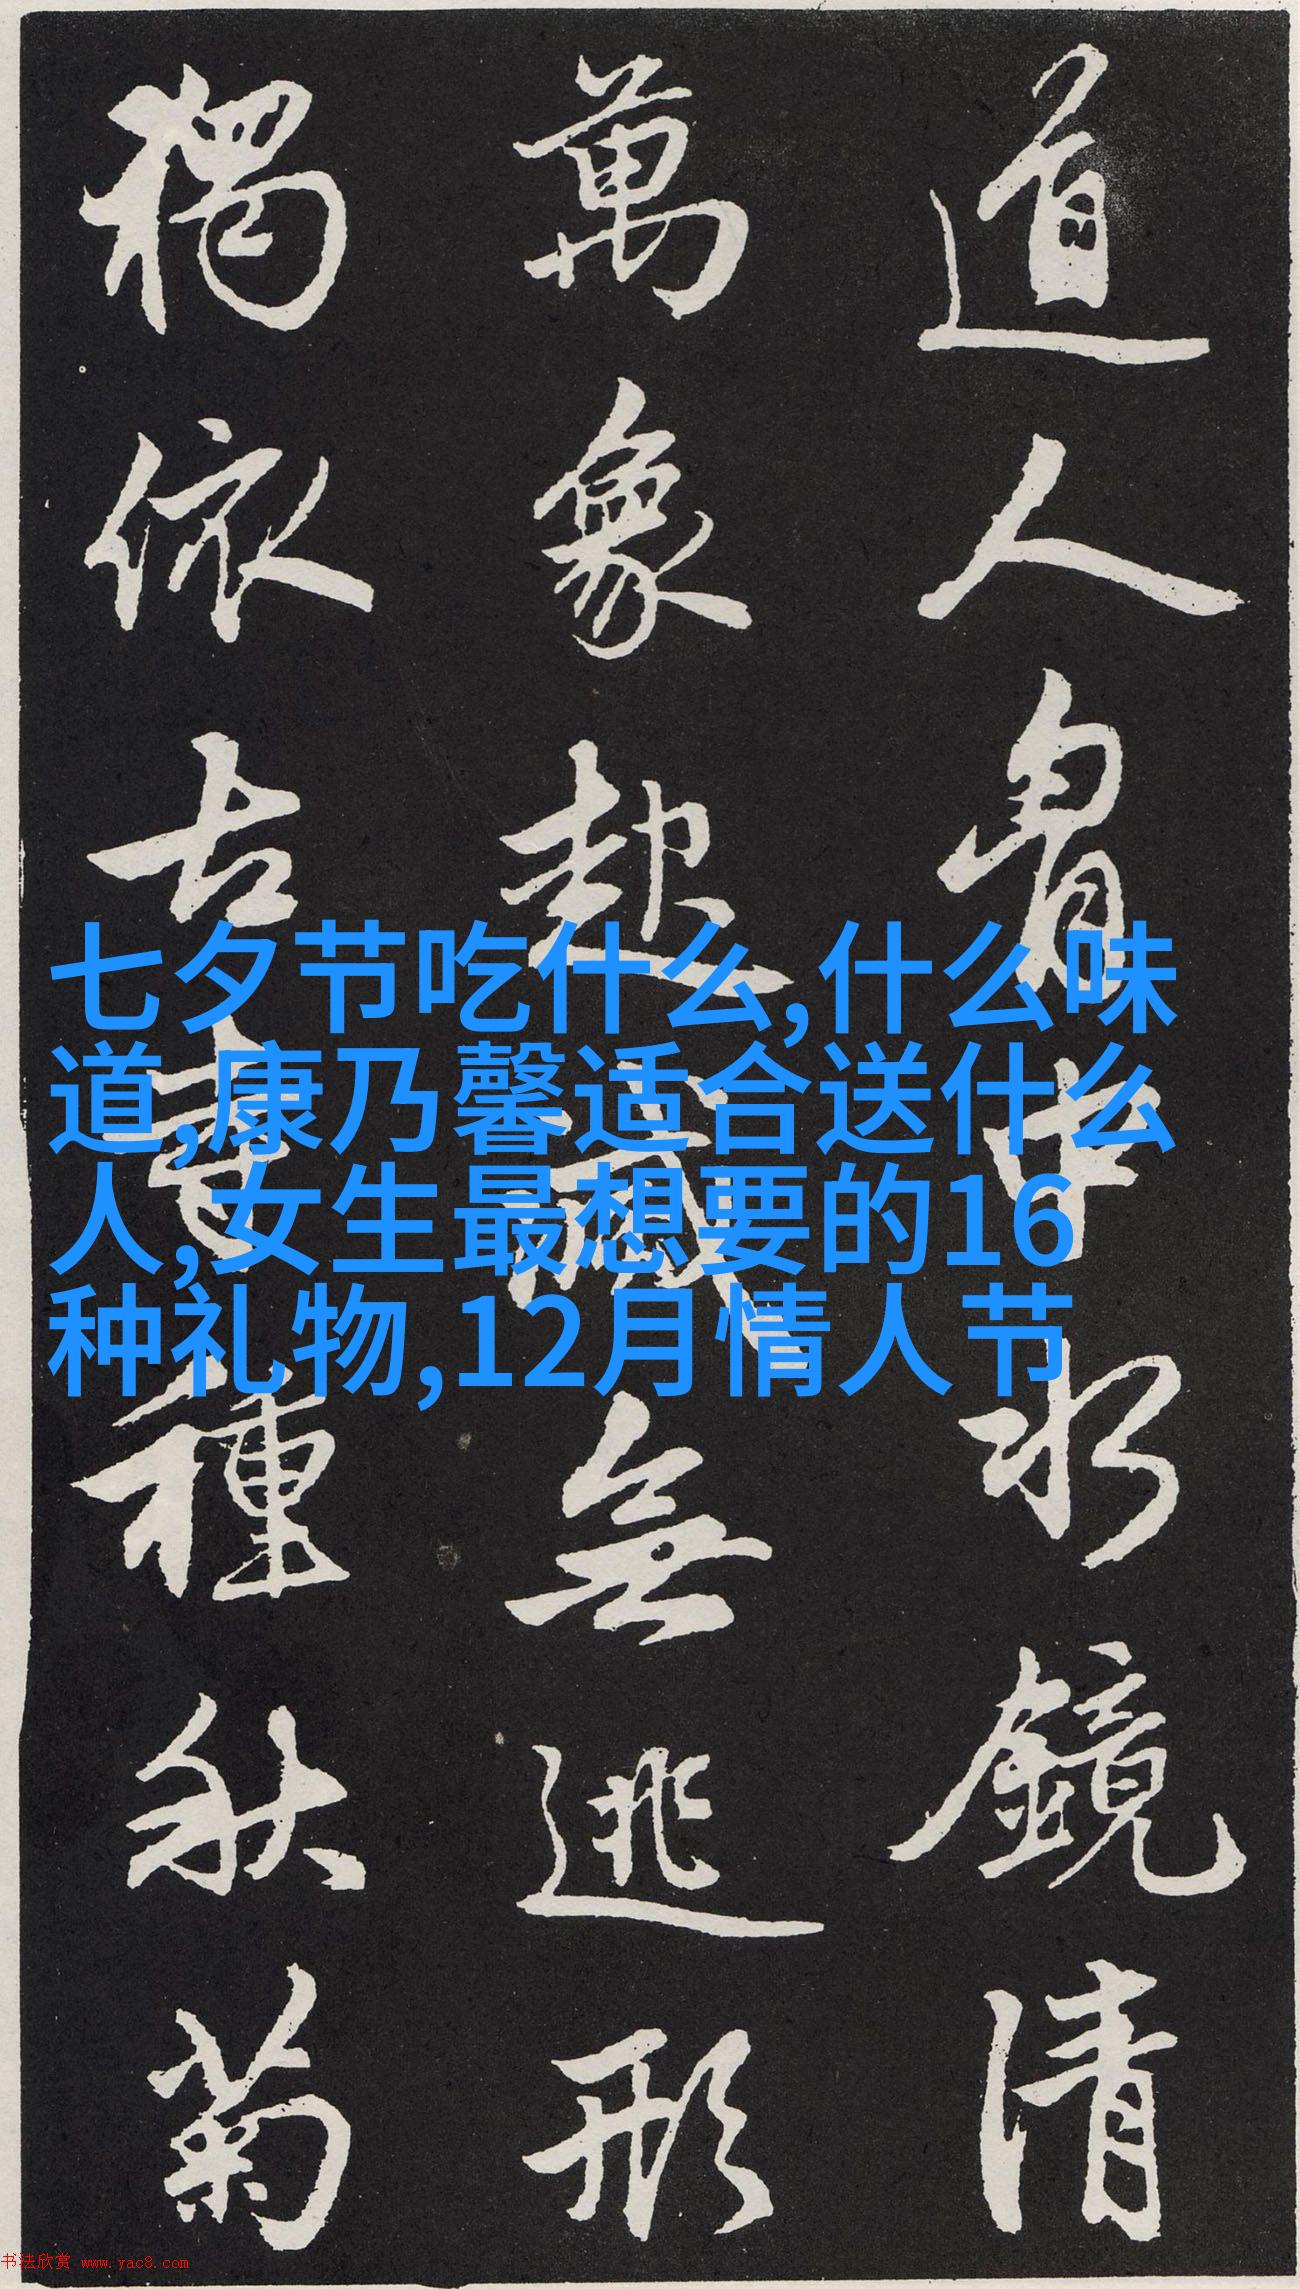 道人胷中水鏡清
萬象起滅無逃形
獨依古寺種秋菊
七夕节吃什么,什么味
道,康乃馨适合送什么
人,女生最想要的16
种礼物,12月情人节
书法欣赏 www.yac8.com